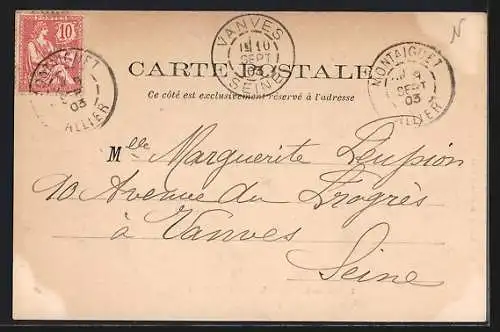 10
VANVES
1E 10
SEPT
03
SEINE
MONTAIGUET
SEPT
03
ALLIER
MONTAIGUET
03
ALLIER
CARTE POSTALE
Ce côté est exclusivement réservé à l'adresse
N
Mlle Marguerite
Avenue du Progrès
à Vanves
Seine